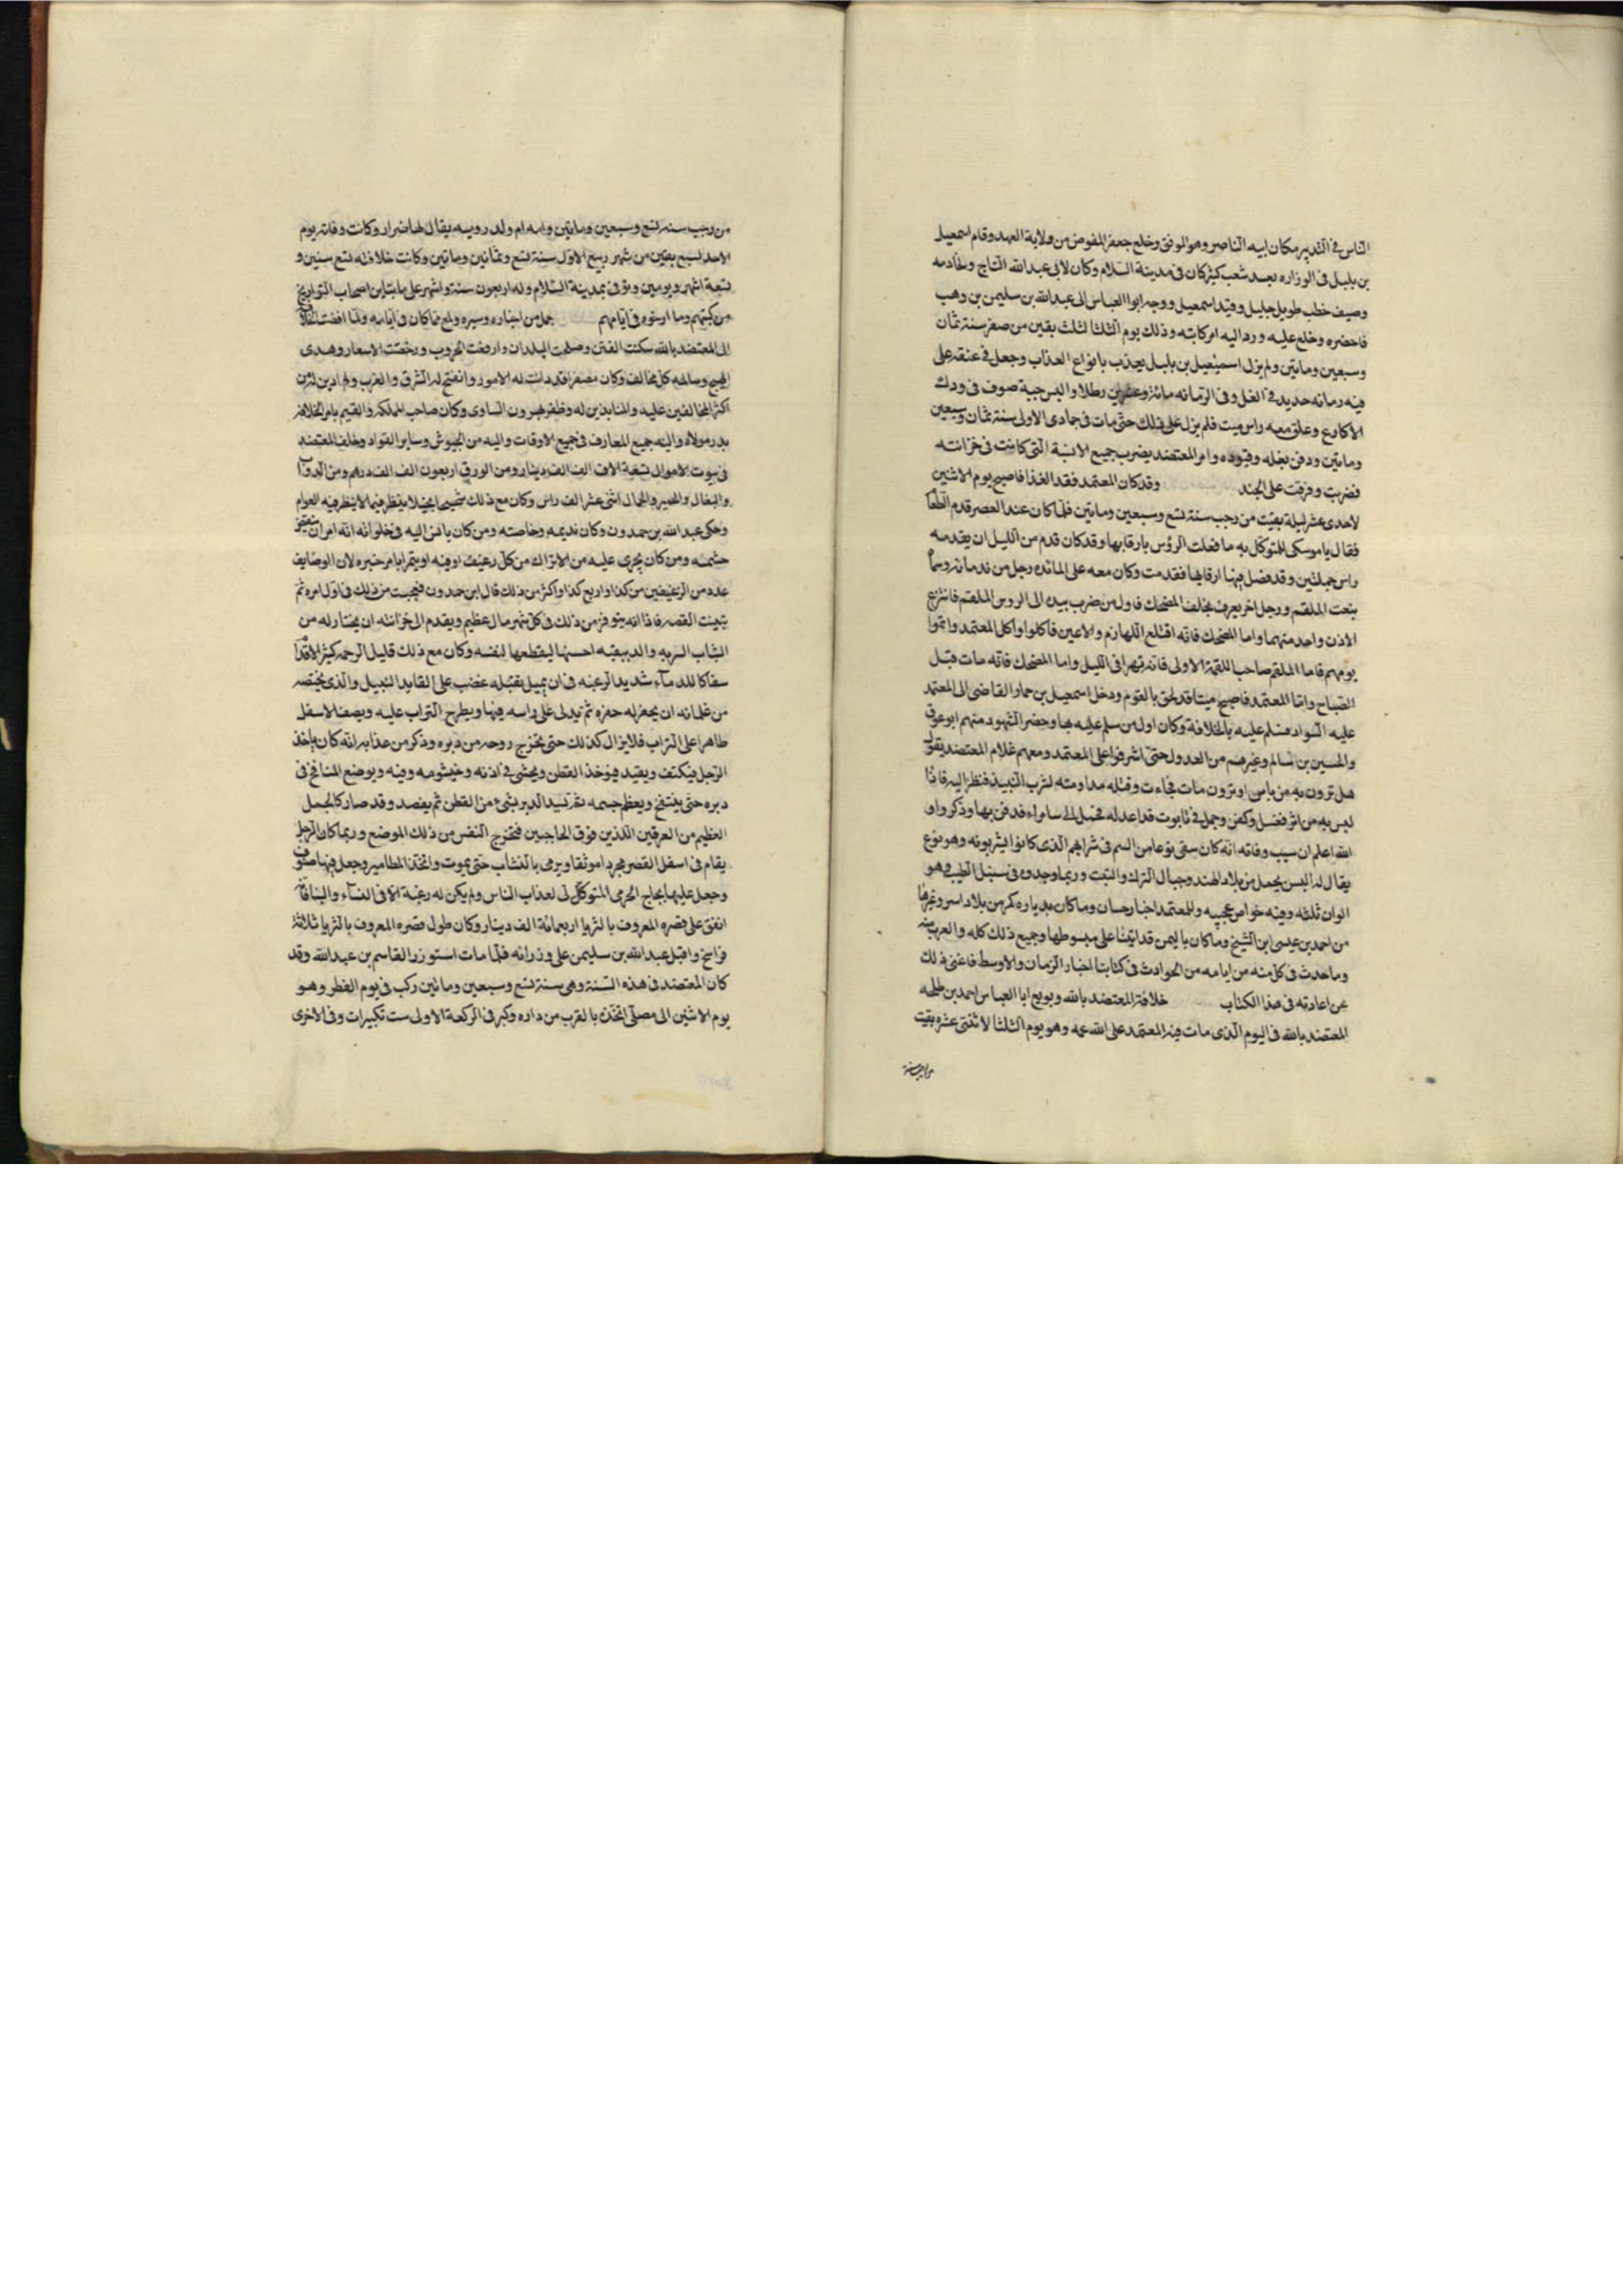 الناس في التدبير مكان ابيه الناصر وهو الموفق وخلع جعفر المفوض من ولاية العهد وقام اسمعيل
بن بلبل في الوزاره بعد شعب كثير كان في مدينة السلام وكان لابي عبد الله التاج وخادمه
وصيف خطب طويل جليل وقيد اسمعيل ووجه ابوا العباس الى عبد الله بن سليمن بن وهب
فاحضره وخلع عليه ورد اليه امر كتابته وذلك يوم الثلثا لثلث بقين من صفر سنة ثمان
وسبعين ومايتين ولم يزل اسمعيل بن بلبل يعذب بانواع العذاب وجعل في عنقه غل
فيه رمانه حديد في الغل وفي الرمانه مائة وعشرين رطلا والبس جبة صوف في ودك
الاكارع وعلق معه راس ميت فلم يزل على ذلك حتى مات في جمادى الاولى سنة ثمان وسبعين
ومايتين ودفن بغله وقيوده وامر المعتضد بضرب جميع الانية التي كانت في خزانته
فضربت وفرقت على الجند وقد كان المعتمد فقد الغذا فاصبح يوم الاثنين
لاحدى عشر ليلة بقيت من رجب سنة تسع وسبعين ومايتين فلما كان عند العصر قدم الطعام
فقال يا موسكى للمتوكل به ما فعلت الرؤس بارقابها وقد كان قدم من الليل ان يقدم له
راس جملين وقد فضل فيها ارقابها فقدمت وكان معه على المائده رجل من ندمانه وسما
ينعت الملقم ورجل اخر يعرف بخلف المضحك فاول من ضرب بيده الى الروس الملقم فانتزع
الاذن واحد منهما واما المضحك فانه اقتلع اللهازم والاعين فاكلوا واكل المعتمد واتموا
يومهم فاما الملقم صاحب اللقمة الاولى فانه تهرا في الليل واما المضحك فانه مات قبل
الصباح واما المعتمد فاصبح ميتا قد لحق بالقوم ودخل اسمعيل بن حماد القاضى الى المعتمد
عليه السواد فسلم عليه بالخلافة وكان اول من سلم عليه بها وحضر الشهود منهم ابو عوف
والحسين بن سالم وغيرهم من العدول حتى اشرفوا على المعتمد ومعهم غلام المعتضد يقول
هل ترون به من باس او ترون مات فجاءت وقتله مداومته لشرب النبيذ فنظر اليه فاذا
ليس به من اثر فغسل وكفن وجمل في تابوت قد اعد له فحمل الى سامراء فدفن بها وذكروا و
الله اعلم ان سبب وفاته انه كان سقى نوعا من السم في شرابهم الذى كانوا يشربونه وهو نوع
يقال له البس يحمل من بلاد الهند وجبال الترك والتبت وربما وجدوه في سنبل الطيب وهو
الوان ثلثه وفيه خواص عجيبه وللمعتمد اخبار حسان وما كان بدياره كر من بلاد اسر وغيرها
من احمد بن عيسى ابن الشيخ وما كان باليمن قد اتينا على مبسوطها وجميع ذلك كله والعرب
وما حدث في كل سنه من ايامه من الحوادث في كتابنا اخبار الزمان والاوسط فاغنى ذلك
عن اعادته في هذا الكتاب خلافة المعتضد بالله وبويع ابا العباس احمد بن طلحه
المعتضد بالله في اليوم الذى مات فيه المعتمد على الله عمه وهو يوم الثلثا لاثنتى عشره بقيت
من رجب سنة
من رجب سنه تسع وسبعين ومايتين وامه ام ولد روميه يقال لها ضرار وكانت وفاته يوم
الاحد لسبع بقين من شهر ربيع الاول سنة تسع وثمانين ومايتين وكانت خلافته تسع سنين و
تسعة اشهر ويومين وتوفى بمدينة السلام وله اربعون سنة واشهر على ما تباين اصحاب التواريخ
من كتبهم وما ارخوه في ايامهم جمل من اخباره وسيره ولمع مما كان في ايامه ولما افضت الخلافة
الى المعتضد بالله سكنت الفتن وصلحت البلدان وارتفعت الحروب ورخصت الاسعار وهدى
الهيج وسالمه كل مخالف وكان مصفرا قد دانت له الامور وانفتح له الشرق والغرب
اكثر المخالفين عليه والمنابذين له وظفر بهرون الساوى وكان صاحب المملكه والقيم بامر الخلافة
بدر مولاه واليه جميع المعارف في جميع الاوقات واليه من الجيوش وساير القواد وخلف المعتضد
في بيوت الاموال تسعة الاف الف دينار ومن الورق اربعون الف الف درهم ومن الدواب
والبغال والحمير والجمال اثنى عشر الف راس وكان مع ذلك شحيحا بخيلا ينظر فيما لا ينظر فيه العوام
وحكى عبد الله بن حمدون وكان نديمه وخاصته ومن كان يانس اليه في خلواته انه امر ان ينقص
حشمه ومن كان يجرى عليه من الاتراك من كل رغيف اوقيه او يتم ايامر خبزه لان الوصايف
عدد من الرغيفين من كذا واربع كذا واكثر من ذلك قال ابن حمدون فتعجبت من ذلك في اول امره ثم
تبينت القصه فاذا انه يتوفر من ذلك في كل شهر مال عظيم ويقدم الى خزانته ان يختار له من
الثياب السريه والديبقيه احسنها ليقطعها لنفسه وكان مع ذلك قليل الرحمه كثير الاقدام
سفاكا للدماء شديد الرغبه في ان يميل بقتله غضب على القايد النبيل والذى يختصه
من غلمانه ان يحفر له حفره ثم يدلى على راسه فيها ويطرح التراب عليه ونصفه الاسفل
ظاهرا على التراب فلا يزال كذلك حتى تخرج روحه من دبره وذكر من عذابه انه كان ياخذ
الرجل فيكتف ويقيد فيوخذ القطن ويحشى في اذنه وخيشومه وفيه ويوضع المنافخ في
دبره حتى ينتفخ ويعظم جسمه ثم تسد الدبر بشىء من القطن ثم يفصد وقد صار كالجمل
العظيم من العرقين اللذين فوق الحاجبين فتخرج النفس من ذلك الموضع وربما كان الرجل
يقام في اسفل القصر مجردا موثقا ويرمى بالنشاب حتى يموت واتخذ المطامير وجعل فيها صنوف
وجعل عليها نجاح الحرمى المتوكل لى لعذاب الناس ولم يكن له رغبة الا في النساء والبناء فانه
انفق على قصره المعروف بالثريا اربعمائة الف دينار وكان طول قصره المعروف بالثريا ثلاثة
فراسخ واقبل عبد الله بن سليمن على وزراته فلما مات استوزر القاسم بن عبد الله وقد
كان المعتضد في هذه السنة وهى سنة تسع وسبعين ومائين ركب في يوم الفطر وهو
يوم الاثنين الى مصلى اتخذه بالقرب من داره وكبر في الركعة الاولى ست تكبيرات وفي الاخرى